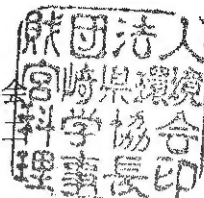 財団法人
宮崎県環境
科学協会
理事長印